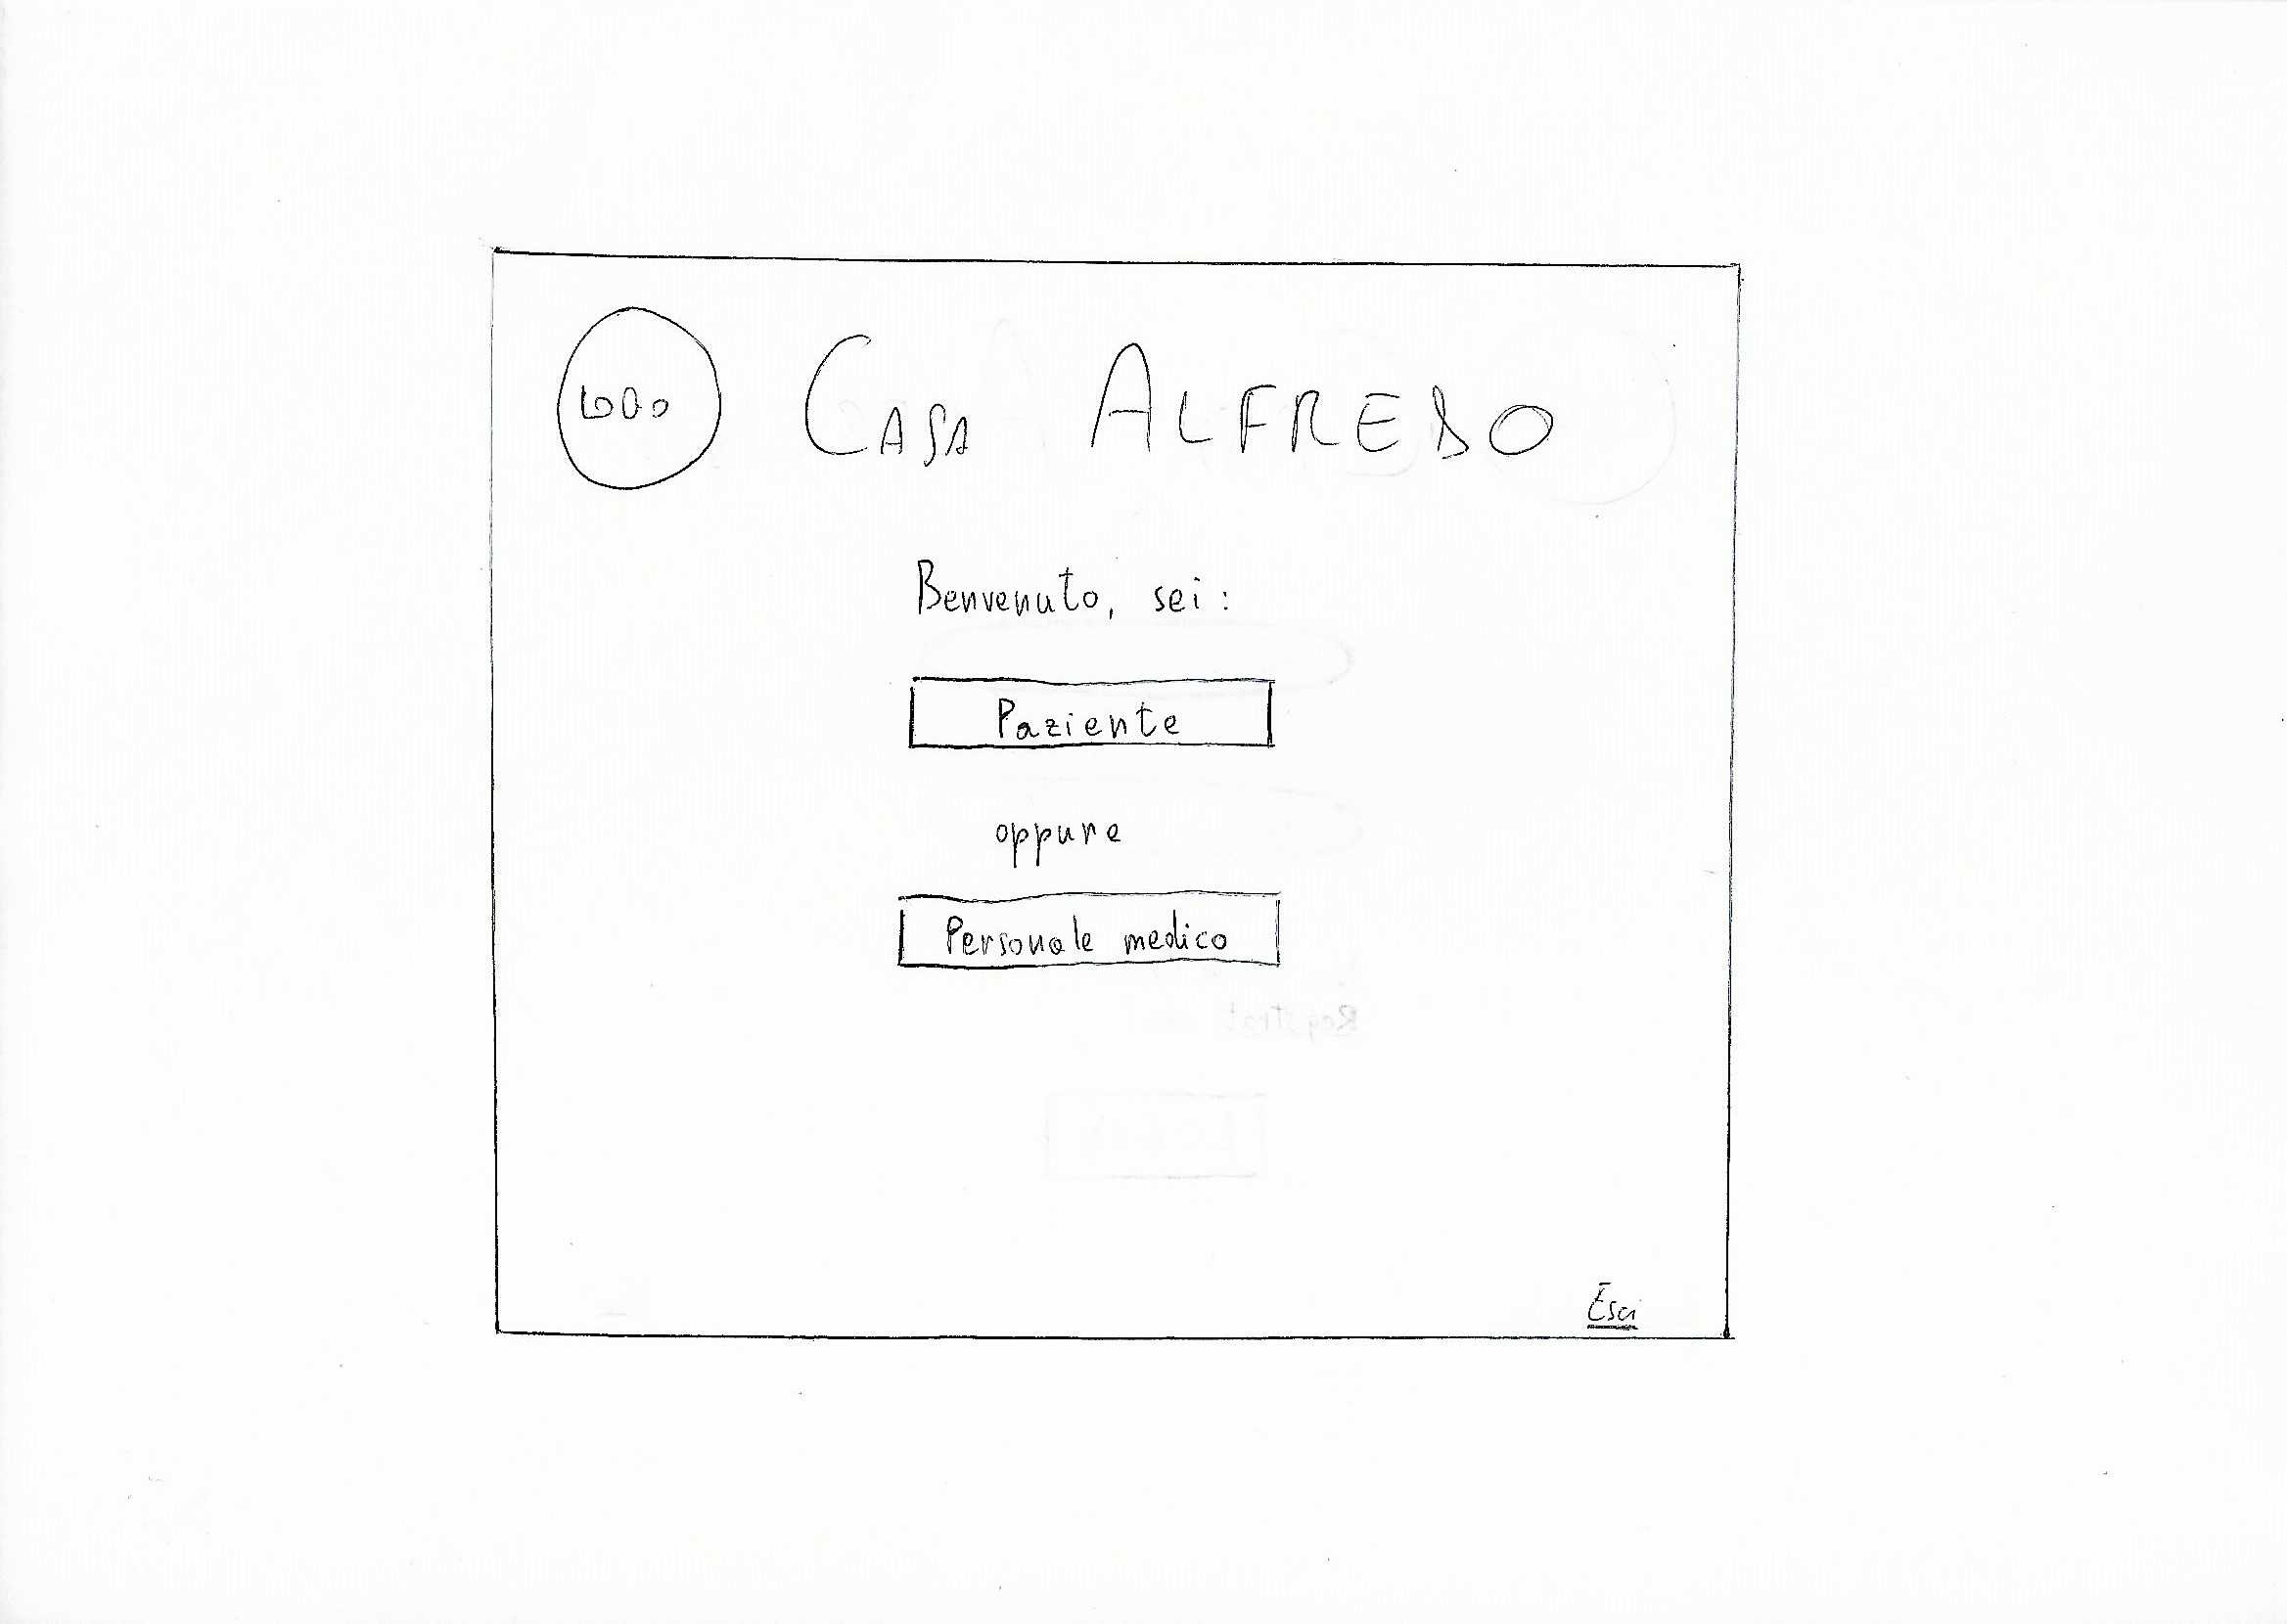 LOGO
CASA ALFREDO
Benvenuto, sei:
Paziente
oppure
Personale medico
Esci